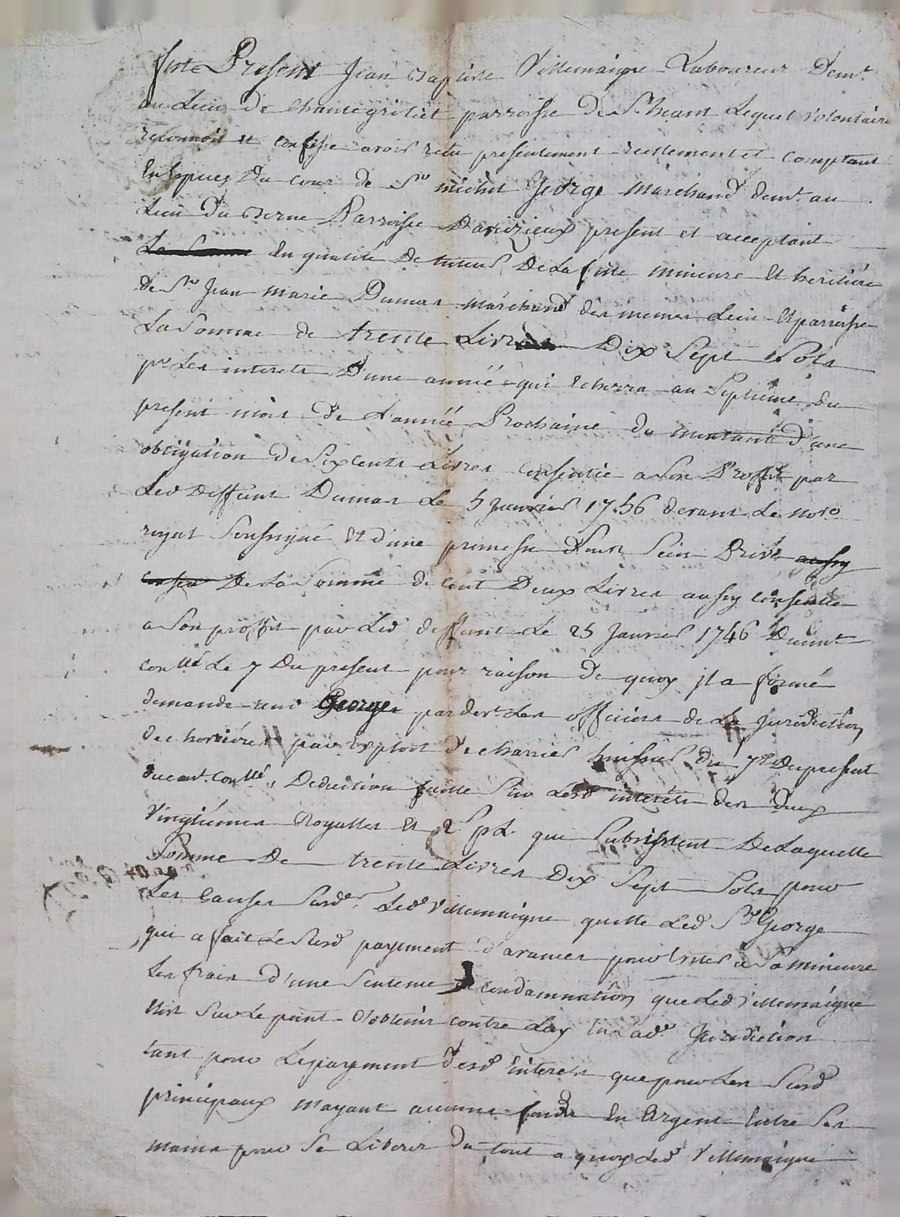 fut Present Jean Baptiste Villemaigne Laboureur dem.t
au Lieu de Chantegrillet parroisse de St. heant Lequel volontaire
reconnoit et confesse avoir recu presentement reellement et comptant
En Espices du cour de Sr michel George marchand dem.t au
Lieu du Berne Parroisse Daveizieux present et acceptant
La Somme En qualité de tuteur De La fille mineure Et heritière
de Sr Jean marie Dumas marchand des memes Lieu Et parroisse
La Somme de trente Livres Dix Sept Sols
pr Les interets D'une année qui Echerra au Septieme du
present mois De L'année Prochaine du montant d'une
obligation de Six cents Livres Consentie a Son Proffit par
Led deffunt Dumas Le 5 Janvier 1756 devant Le nore
royal Soussigné Et d'une promesse Sous Sein Privé aussy
De La Somme de cent Deux Livres aussy consentie
a Son proffit par Led deffunt Le 25 Janvier 1746
conllé Le 7 Du present pour raison De quoy il a formé
demande aud George pardev. Les officiers de La Jurediction
de par Exploit de charrier huissier du 7e Du present
conllé, Deduction faite Sur Lesd interets des Deux
Vingtiemes Royalles Et 2 s pL que Subsistent De Laquelle
Somme De trente Livres Dix Sept Sols pour
Les Causes Susd. Led Villemaigne quitte Led Sr George
qui a fait Le Susd payement d'avance pour Eviter a Sa mineure
Les frais D'une Sentence de condamnation que Led Villemaigne
Etoit Sur Le point D'obtenir contre Luy En lad. Jurediction
tant pour Le payement D'esd interets que pour Les Susd
principaux n'ayant aucuns fonds En Argent Entre Ses
mains pour Se Liberer Du tout a quoy Led Villemaigne